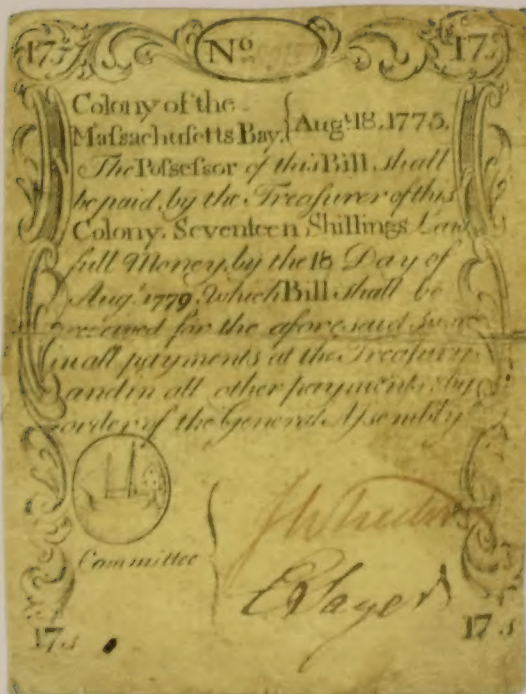 17s No 17s
Colony of the
Massachusetts Bay, { Augt. 18, 1775.
The Possessor of this Bill shall
be paid, by the Treasurer of this
Colony, Seventeen Shillings Law
full Money, by the 18 Day of
Augt. 1779, Which Bill shall be
received for the aforesaid Sum
in all payments at the Treasury
and in all other payments by
order of the General Assembly
Committee
17s 17s